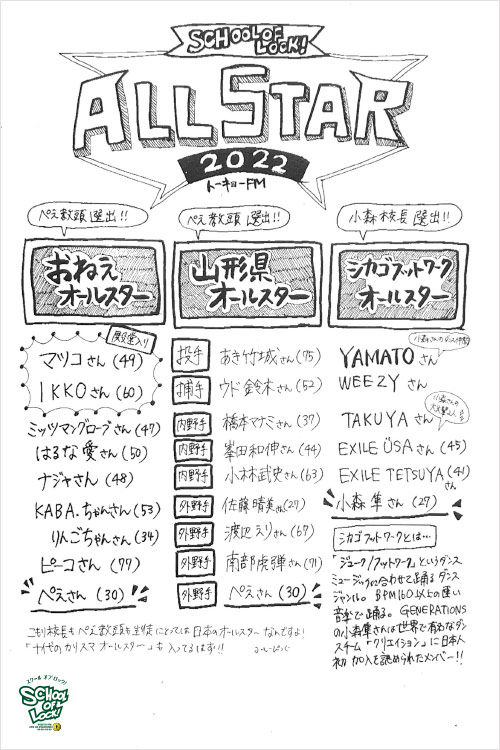 SCHOOL OF LOCK!
ALL STAR
2022
トーキョーFM
ぺえ教頭 選出!!
おねえ
オールスター
殿堂入り
マツコさん (49)
IKKOさん (60)
ミッツマングローブさん (47)
はるな愛さん (50)
ナジャさん (48)
KABA.ちゃんさん (53)
りんごちゃんさん (34)
ピーコさん (77)
ぺえさん (30)
ぺえ教頭 選出!!
山形県
オールスター
投手 あき竹城さん (75)
捕手 ウド鈴木さん (52)
内野手 橋本マナミさん (37)
内野手 峯田和伸さん (44)
内野手 小林武史さん (63)
外野手 佐藤晴美さん (27)
外野手 渡辺えりさん (67)
外野手 南部虎弾さん (71)
外野手 ぺえさん (30)
小森校長 選出!!
シカゴフットワーク
オールスター
小森さんのダンス仲間
YAMATOさん
WEEZYさん
小森さんの
TAKUYAさん
EXILE ÜSAさん (45)
EXILE TETSUYAさん (41)
小森 隼さん (27)
シカゴフットワークとは…
「ジューク/フットワーク」というダンス
ミュージックに合わせて踊るダンス
ジャンル。BPM160以上の速い
音楽で踊る。GENERATIONS
の小森隼さんは世界で有名なダン
スチーム「クリエイション」に日本人
初加入を認められたメンバー!!
こもり校長も ぺえ教頭も生徒にとっては日本のオールスターなんですよ!
「十代のカリスマオールスター」も入ってるはず!!
スクール オブ ロック!
SCHOOL OF LOCK!